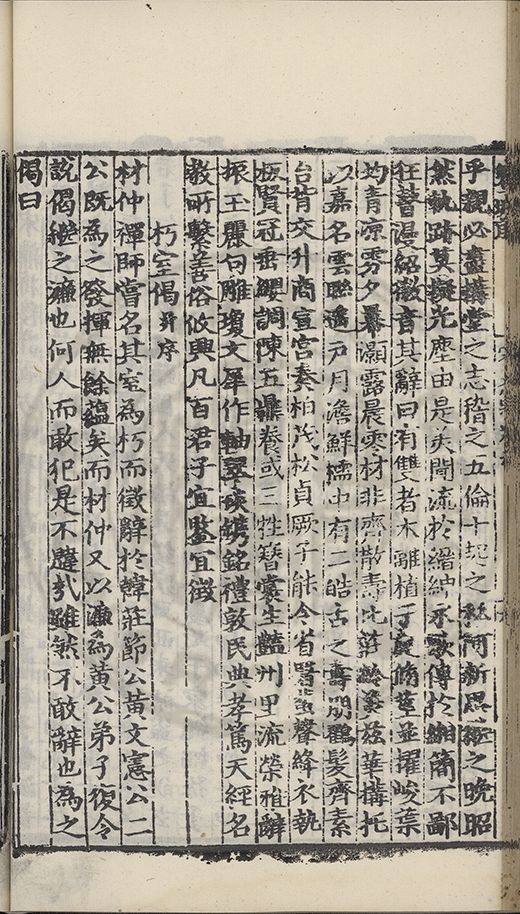 乎親必盡構堂之志稽之五倫十起之私何新恩繼之晚昭
然執跡莫擬光塵由是美聞流於縉紳永歌傳於緗簡不鄙
狂瞽漫紹徽音其辭曰有雙者木離植于庭脩莖並擢峻葉
均青凉雰夕暴灝露晨零材非齊散壽比莊齡羙茲華構托
以嘉名雲聯遙戶月澹鮮櫺中有二皓舌之壽朋鶴髮齊素
台背交升商宣宮奏柏茂松貞厥子能令省醫蜚聲絳衣執
板賢冠垂纓調陳五鼎養或三牲簪裳生豔州里流榮雅辭
振玉麗句雕瓊文犀作軸翠琰鐫銘禮敦民典孝篤天經名
教所繫善俗攸興凡百君子宜監宜徵
朽室偈并序
材仲禪師嘗名其室為朽而徵辭於韓莊節公黃文憲公二
公既為之發揮無餘蘊矣而材仲又以濂為黃公弟子復令
說偈繼之濂也何人而敢犯是不韙哉雖然不敢辭也為之
偈曰